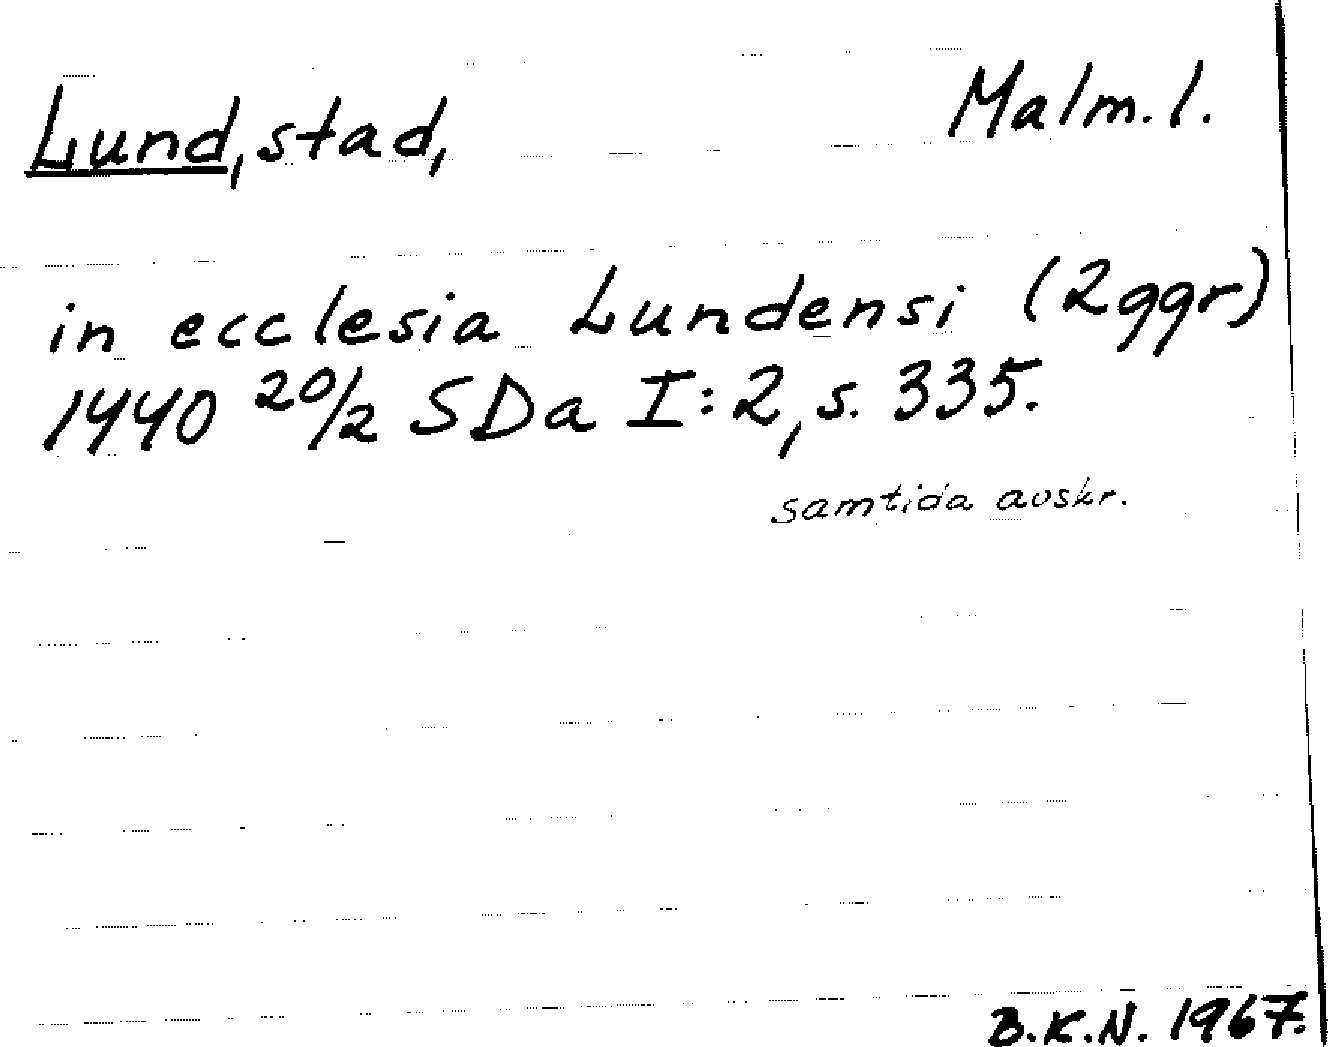 Lund, stad, Malm. l.
in ecclesia Lundensi (2ggr)
1440 20/2 SDa I:2, s. 335.
samtida avskr.
B.K.N. 1967.